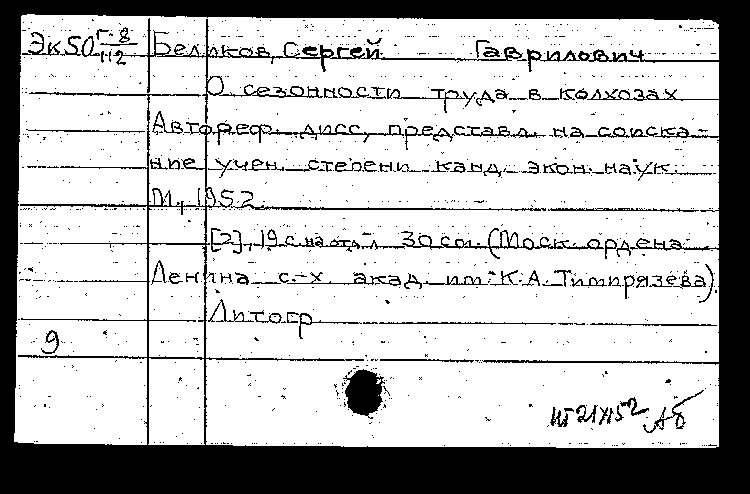 Эк50 Г-8/112 Беляков, Сергей Гаврилович
О сезонности труда в колхозах
Автореф. дисс, представл. на соиска-
ние учен. степени канд. экон. наук.
М., 1952.
[2], 19 с. на отд. л 30 см. (Моск. ордена
Ленина с.-х. акад. им. К.А. Тимирязева)
Литогр.
9